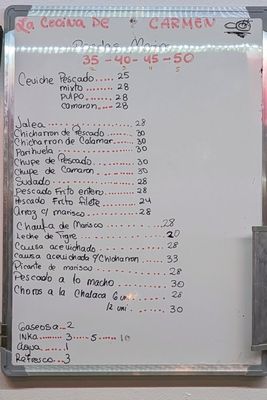 La Cocina DE CARMEN
35 - 40 - 45 - 50
Ceviche Pescado ..... 25
mixto ........ 28
pulpo ........ 28
camaron .... 28
Jalea .......................... 28
Chicharron de Pescado ....... 30
Chicharron de Calamar ...... 30
Parihuela .................... 30
Chupe de Pescado .......... 30
Chupe de Camaron ......... 30
Sudado ..................... 28
Pescado Frito entero ....... 28
Pescado Frito filete ....... 24
Arroz c/ marisco ........... 28
Chaufa de Marisco ........... 28
Leche de Tigre ............... 20
Causa acevichado ............ 28
Causa acevichado y/Chicharron ... 33
Picante de marisco ........... 28
Pescado a lo macho .......... 30
Choros a la Chalaca 6 uni ..... 28
12 uni ..... 30
Gaseosa - 2
INKA ..... 3 ..... 5 ..... 10
Agua ..... 1
Refresco . 3